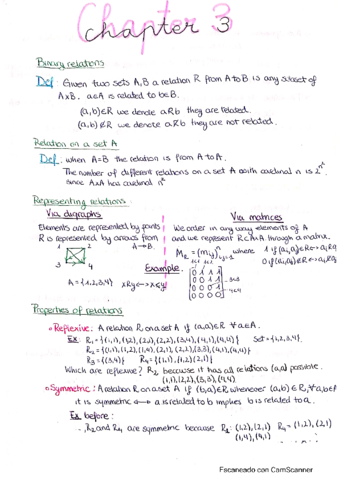 Chapter 3
Binary relations
Def: Given two sets A,B a relation R from A to B is any subset of
AxB. a∈A is related to b∈B.
(a,b)∈R we denote aRb they are related.
(a,b)∉R we denote aRb they are not related.
Relation on a set A
Def: when A=B the relation is from A to A.
The number of different relations on a set A with cardinal n is 2^n²
since AxA has cardinal n²
Representing relations
Via digraphs
Elements are represented by points
R is represented by arrows from
A→B.
1 2
3 4
A = {1,2,3,4} xRy ↔ x<y
Via matrices
We order in any way elements of A
and we represent R⊂AxA through a matrix.
where 1 if (ai,aj)∈R↔aiRaj
Example:
0 1 1 1
0 0 1 1
0 0 0 1
0 0 0 0
Properties of relations
Reflexive: A relation R on a set A if (a,a)∈R ∀a∈A.
Ex: R1={(1,1),(1,2),(2,1),(2,2),(3,4),(4,1),(4,4)} Set={1,2,3,4}
R3={(3,4)} R4={(1,1),(1,2)(2,1)}
Which are reflexive? R2 because it has all relations (a,a) possible.
(1,1),(2,2),(3,3),(4,4)
Symmetric: A relation R on a set A if (b,a)∈R whenever (a,b)∈R, ∀a,b∈A
it is symmetric ↔ a is related to b implies b is related to a.
Ex before:
R2 and R4 are symmetric because R2: (1,2),(2,1) R4=(1,2),(2,1)
(1,4),(4,1)
Escaneado con CamScanner